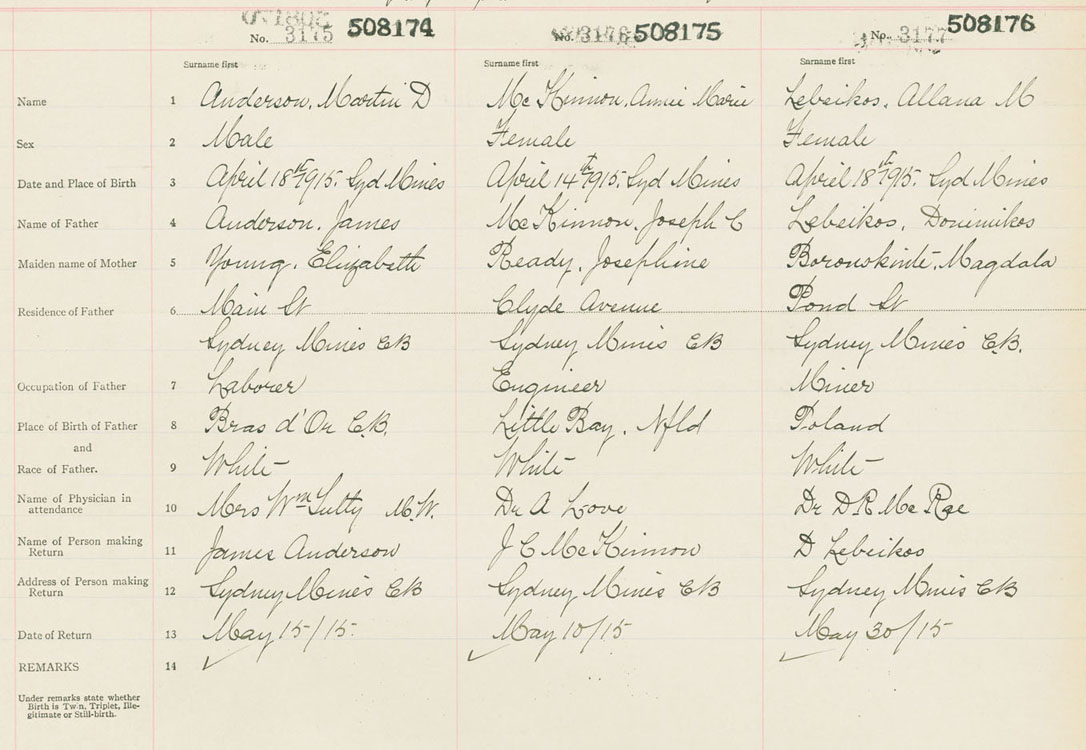 No. 3175 508174 No. 3176 508175 No. 3177 508176
Surname first Surname first Surname first
Name 1 Anderson, Martin D Mc Kinnon, Annie Marie Lebeikos, Allana M
Sex 2 Male Female Female
Date and Place of Birth 3 April 18th 1915. Syd Mines April 14th 1915. Syd Mines April 18th 1915. Syd Mines
Name of Father 4 Anderson, James Mc Kinnon, Joseph C Lebeikos, Dominikos
Maiden name of Mother 5 Young, Elizabeth Ready, Josephine Boronskinte, Magdala
Residence of Father 6 Main St Clyde Avenue Pond St
Sydney Mines CB Sydney Mines CB Sydney Mines C.B.
Occupation of Father 7 Laborer Engineer Miner
Place of Birth of Father 8 Bras d'Or C.B. Little Bay, Nfld Poland
and
Race of Father. 9 White White White
Name of Physician in
attendance 10 Mrs Wm M.W. Dr A Love Dr D R Mc Rae
Name of Person making
Return 11 James Anderson J C Mc Kinnon D Lebeikos
Address of Person making
Return 12 Sydney Mines CB Sydney Mines CB Sydney Mines CB
Date of Return 13 May 15/15. May 10/15 May 30/15
REMARKS 14
Under remarks state whether
Birth is Twin, Triplet, Ille-
gitimate or Still-birth.